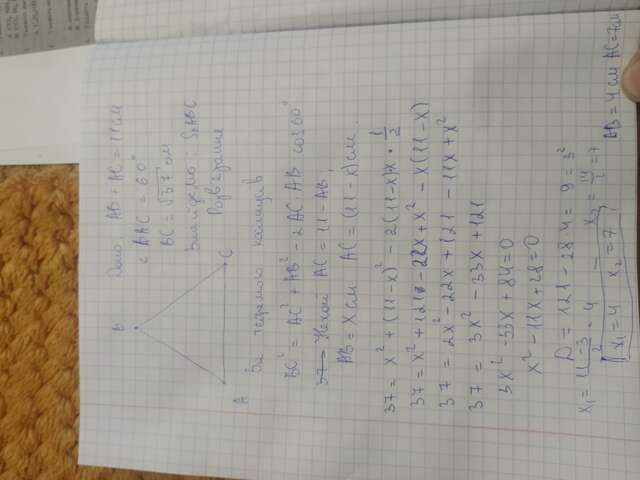 Дано: AB + AC = 11 см
∠ BAC = 60°
BC = √37 см
Знайдемо: S△ABC
Розв'язання
B
A
C
За теоремою косинусів
BC² = AC² + AB² - 2AC·AB·cos60°
37 Нехай AC = 11 - AB,
AB = x см AC = (11 - x) см
37 = x² + (11 - x)² - 2(11 - x)x · 1/2
37 = x² + 121 - 22x + x² - x(11 - x)
37 = 2x² - 22x + 121 - 11x + x²
37 = 3x² - 33x + 121
3x² - 33x + 84 = 0
x² - 11x + 28 = 0
D = 121 - 28·4 = 9 = 3²
x₁ = (11 - 3)/2 = 4 x₂ = 14/2 = 7
x₁ = 4 x₂ = 7
AB = 4 см AC = 7 см